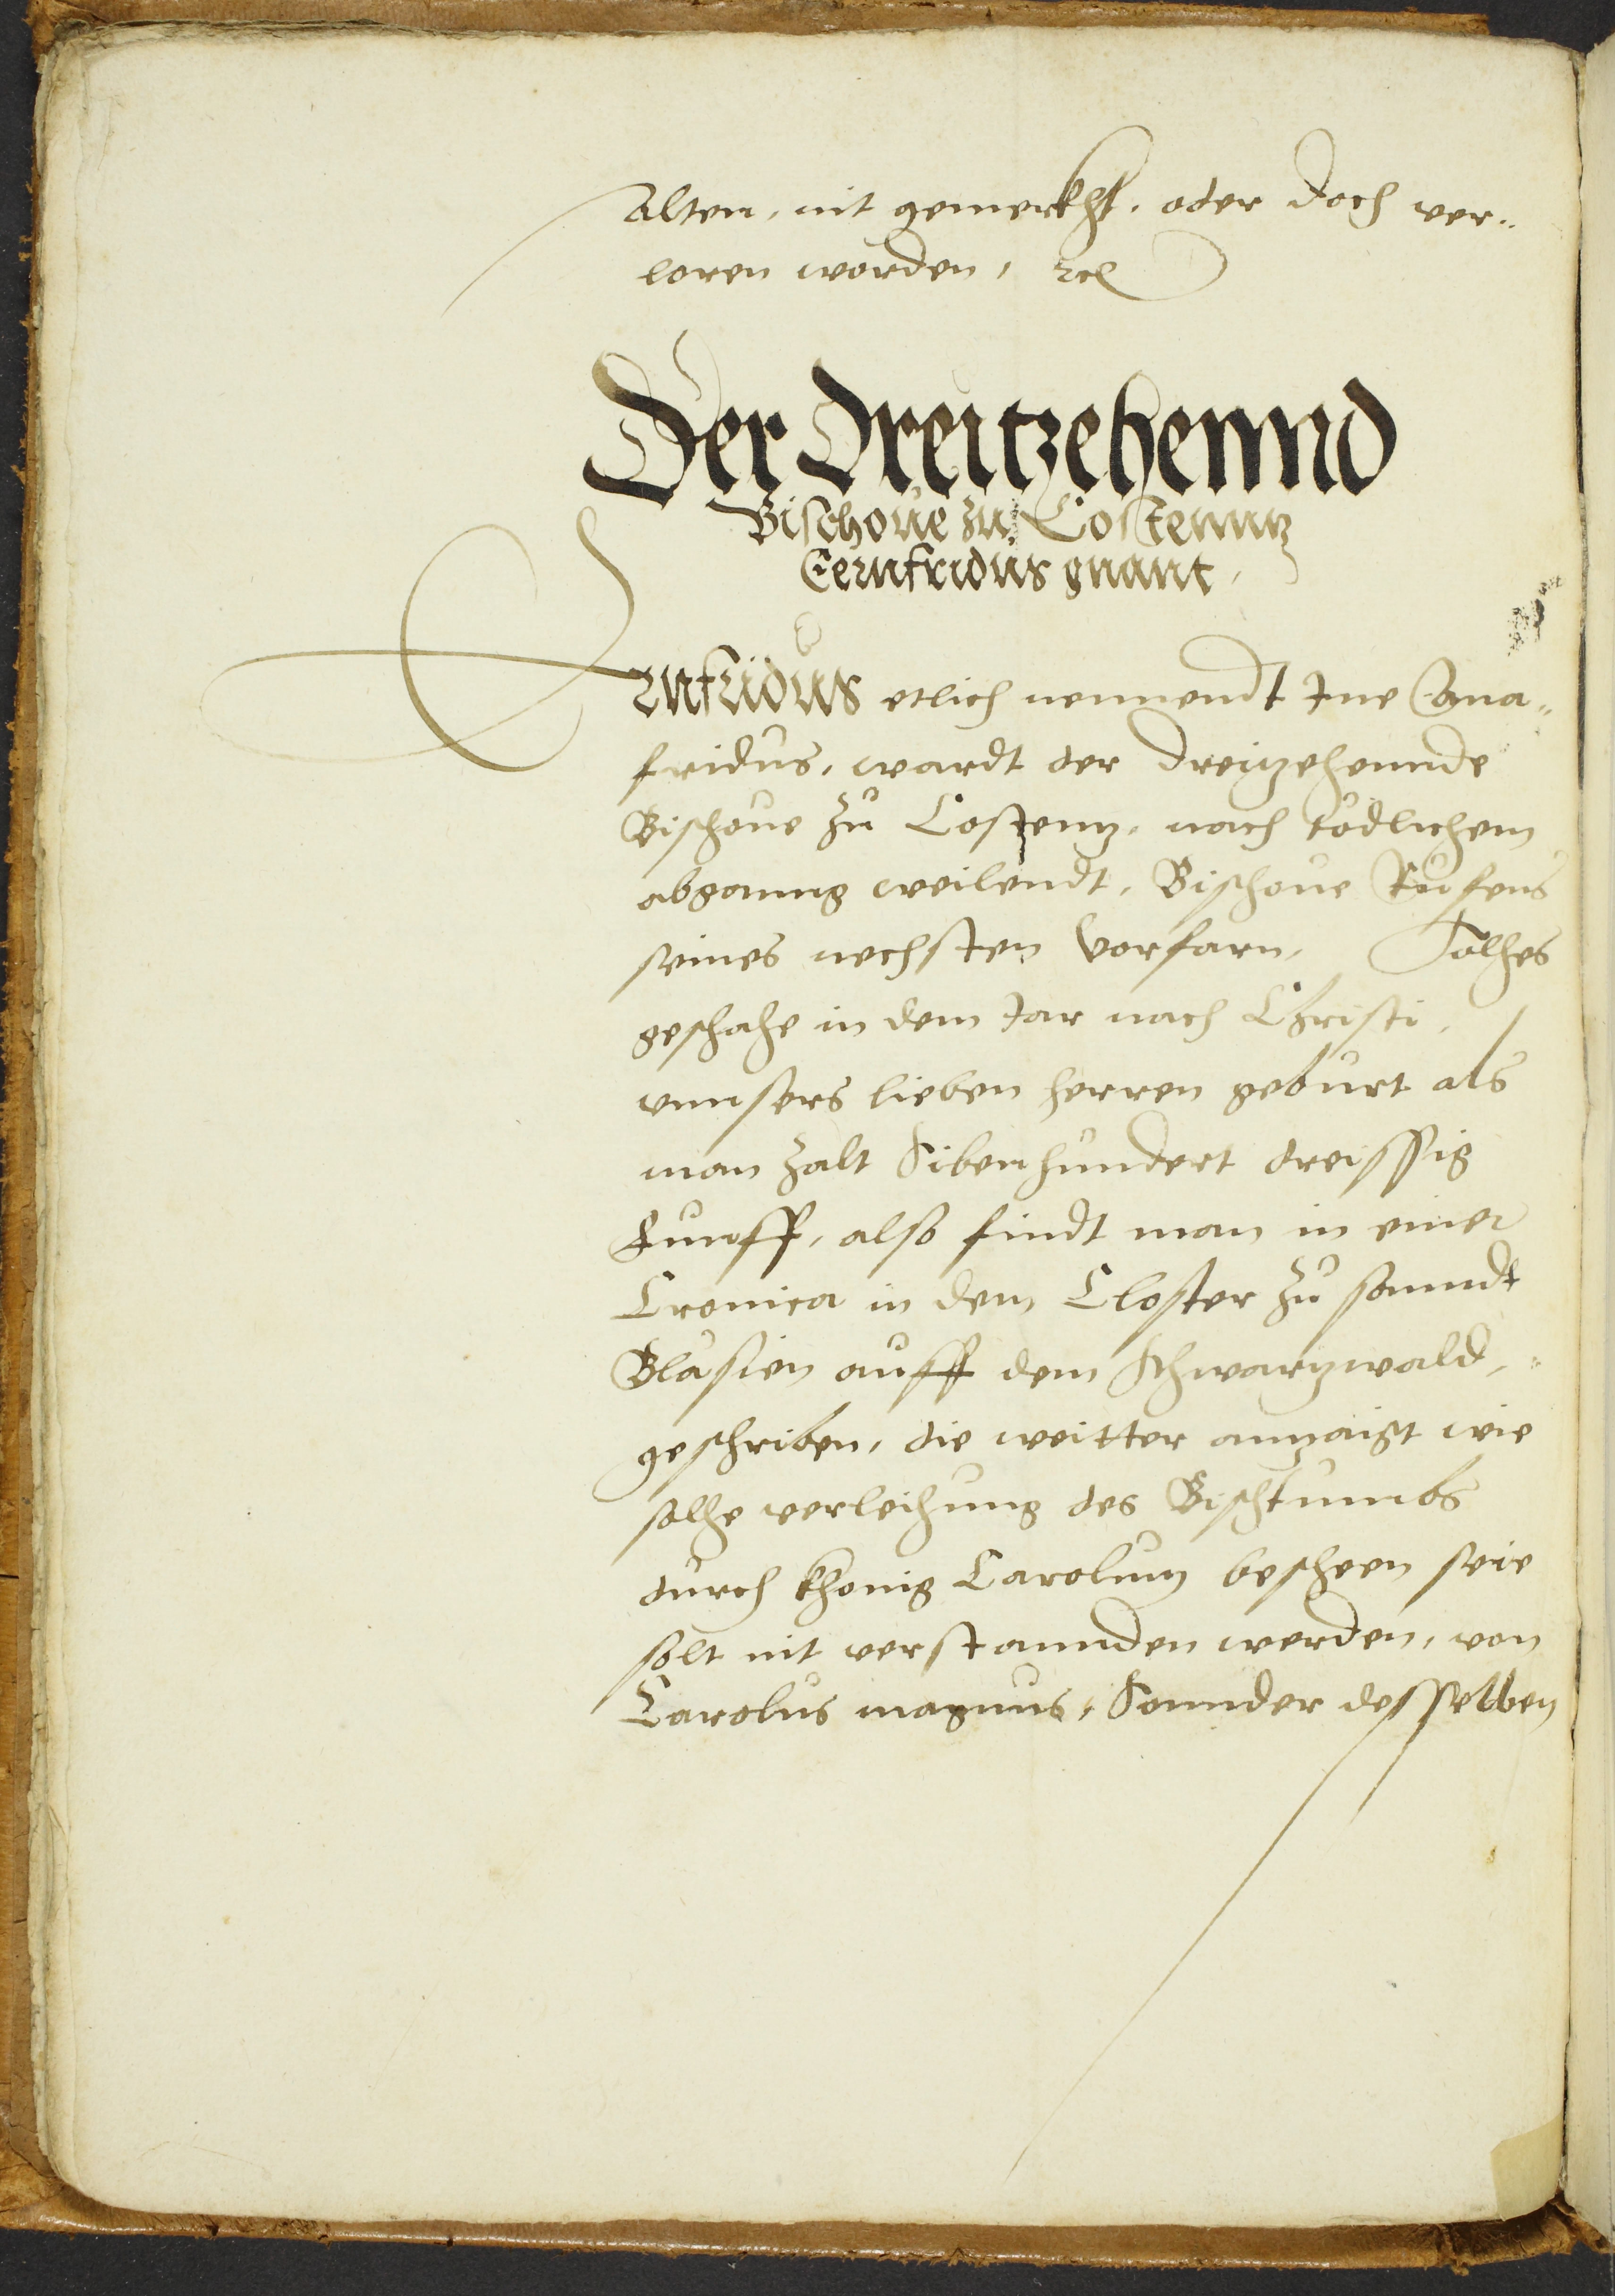 alten, nit gemerkht, oder doch ver„
loren worden, ⁊c
Der Dreitzehennd
Bischoue zu Costenntz
Eernfridus gnant,
Ernfridus etlich nennendt Ine Gana„
fridus, wardt der dreitzehennde
Bischoue zu Costentz, nach todlichem
abganng weilendt, Bischoue Rufens
seines nechsten Vorfarn, Solhes
geschahe in dem Jar nach Christi,
vnnsers lieben herren geburt als
man zalt Sibenhundert dreissig
Funff, also findt man in einer
Cronica in dem Closter zu sanndt
Blasien auff dem Schwartzwald,
geschriben, die weitter antzaigt wie
solhe verleihung des Bischtumbs
durch khonig Carolum bescheen seie
solt nit verstannden werden, von
Carolus magnus, Sonnder desselben